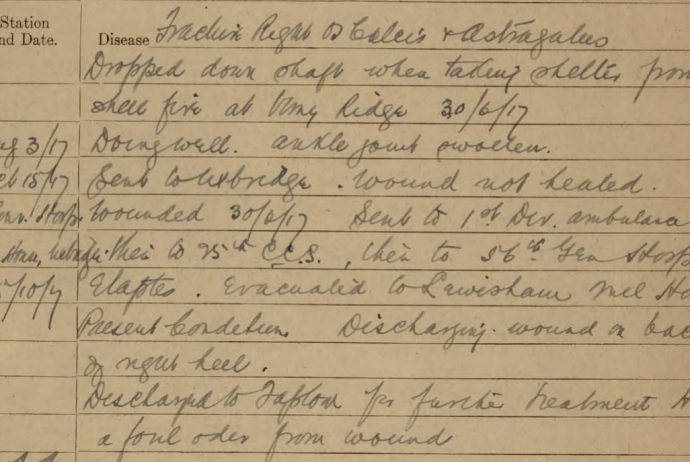 Station
nd Date.
Disease Fracture Right Os Calcis & Astragalus
Dropped down shaft when taking shelter from
shell fire at Vimy Ridge 30/6/17
3/17 Doing well. ankle joint swollen.
15/17 Sent to Uxbridge. Wound not healed.
Hosp. Wounded 30/6/17 Sent to 1st Div. ambulance
then to C.C.S., then to 56th Gen Hosp
/10/17 Etaples. Evacuated to Lewisham Mil Ho
Present Condition Discharging wound on bac
of right heel.
Discharged to Taplow for further treatment
a foul oder from wound